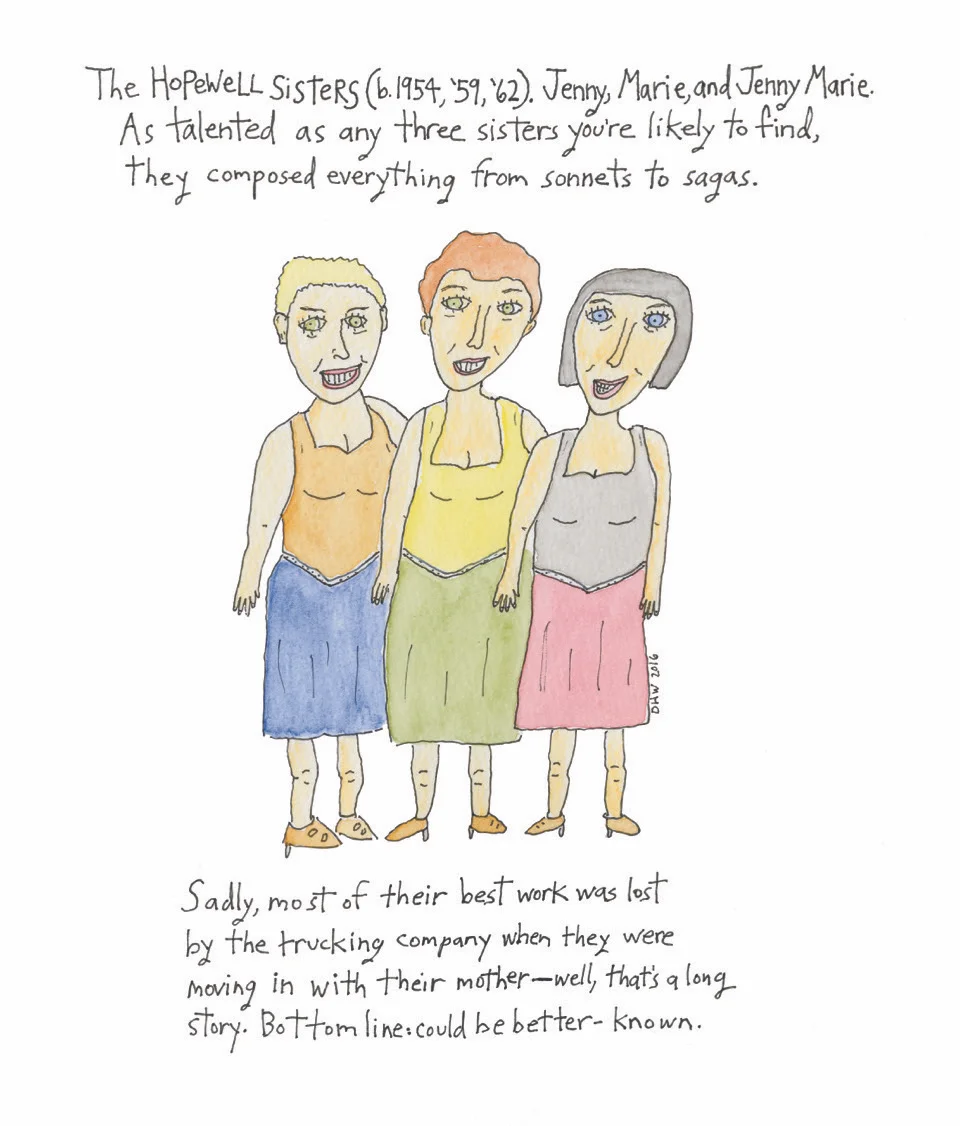 The Hopewell Sisters (b.1954, '59, '62). Jenny, Marie, and Jenny Marie.
As talented as any three sisters you're likely to find,
they composed everything from sonnets to sagas.
DHW 2016
Sadly, most of their best work was lost
by the trucking company when they were
moving in with their mother—well, that's a long
story. Bottom line: could be better-known.